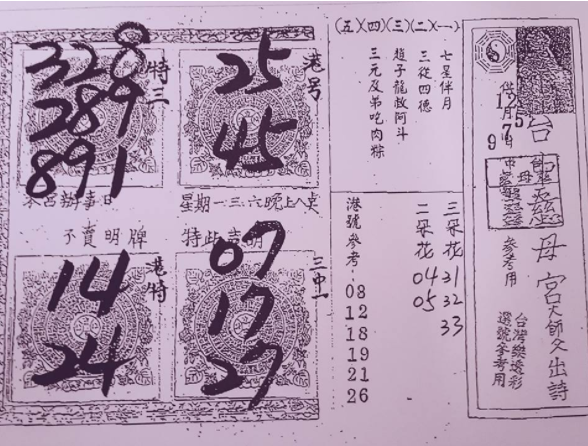 328
289
891
特三
25
45
港号
本宮辦事日
星期一三.六晚上八点
不賣明牌
特此声明
14
24
港特
07
17
27
三中一
(五)(四)(三)(二)(一)
七星伴月
三從四德
趙子龍救阿斗
三元及弟吃肉粽
三朵花 31 32 33
二朵花 04 05
港號參考.
08
12
18
19
21
26
台
母宮
大師父出詩
參考用
台灣樂透彩
選號參考用